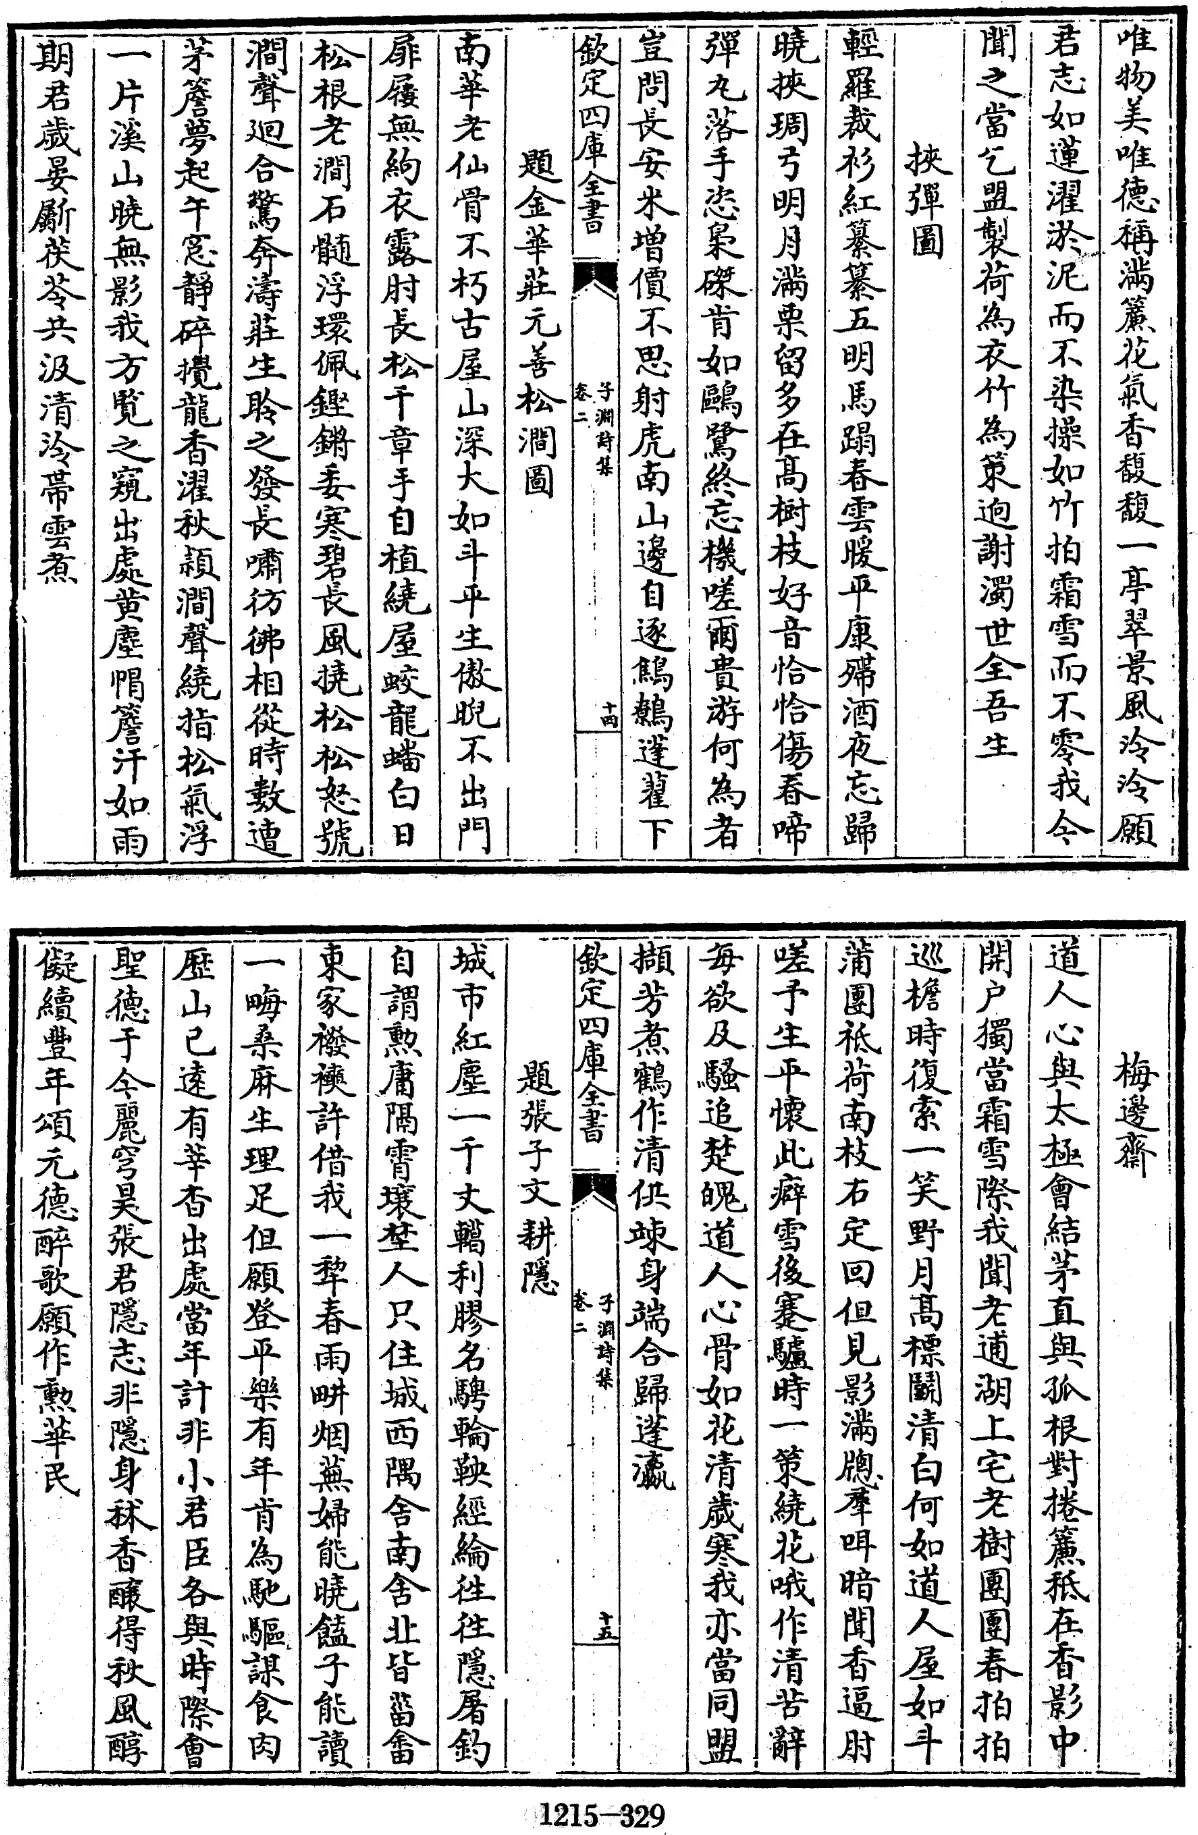 唯物美唯德稱滿簾花氣香馥馥一亭翠景風泠泠願
君志如蓮濯淤泥而不染操如竹拍霜雪而不零我今
聞之當乞盟製荷為衣竹為策逈謝濁世全吾生
挾彈圖
輕羅裁衫紅纂纂五明馬蹋春雲暖平康殢酒夜忘歸
曉挾琱弓明月滿栗留多在髙樹枝好音恰恰傷春啼
彈丸落手恣梟磔肯如鷗鷺終忘機嗟爾貴游何為者
豈問長安米增價不思射虎南山邊自逐鴳鷯蓬藋下
欽定四庫全書
子淵詩集
卷二
十四
題金華莊元善松澗圖
南華老仙骨不朽古屋山深大如斗平生傲睨不出門
扉屨無絇衣露肘長松千章手自植繞屋蛟龍蟠白日
松根老澗石髓浮環佩鏗鏘委寒碧長風撓松松怒號
澗聲迴合驚奔濤莊生聆之發長嘯彷彿相從時數遭
茅簷夢起午窓靜碎攪龍香濯秋潁澗聲繞指松氣浮
一片溪山曉無影我方覽之窺出處黄塵帽簷汗如雨
期君歲晏劚茯苓共汲清泠帶雲煮
梅邊齋
道人心與太極會結茅直與孤根對捲簾秪在香影中
開户獨當霜雪際我聞老逋湖上宅老樹團團春拍拍
巡檐時復索一笑野月髙標鬭清白何如道人屋如斗
蒲團祗荷南枝右定回但見影滿牕羣咡暗聞香逼肘
嗟予生平懷此癖雪後蹇驢時一策繞花哦作清苦辭
每欲及騷追楚魄道人心骨如花清歲寒我亦當同盟
擷芳煮鶴作清供竦身端合歸蓬瀛
欽定四庫全書
子淵詩集
卷二
十五
題張子文耕隱
城市紅塵一千丈轕利膠名騁輪鞅經綸徃徃隱屠釣
自謂勲庸隔霄壤埜人只住城西隅舍南舍北皆菑畬
東家襏襫許借我一犂春雨畊烟蕪婦能曉饁子能讀
一畮桑麻生理足但願登平樂有年肯為馳驅謀食肉
歴山已逺有莘杳出處當年計非小君臣各與時際會
聖德于今麗穹昊張君隱志非隱身秫香釀得秋風醇
儗續豐年頌元德醉歌願作勲華民
1215—329